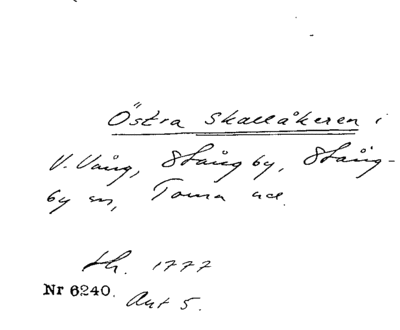 Östra Skallåkeren i
V. Vång, Stångby, Stång-
by sn, Torna hd.
sk. 1777
Nr 6240. Akt 5.